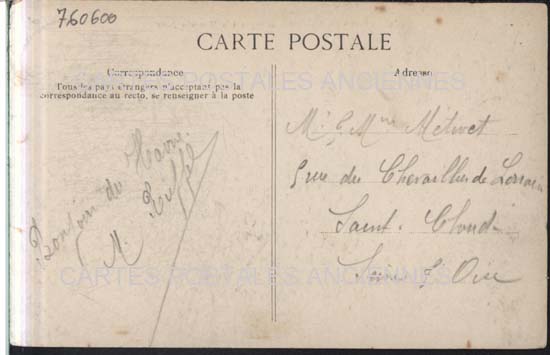 760600
CARTE POSTALE
Correspondance
Tous les pays étrangers n'acceptant pas la
correspondance au recto, se renseigner à la poste
Adresse
CARTES POSTALES ANCIENNES
Bonjour du Havre
M.
M. & Mme Métivet
5 rue du Chevalier de Lorrain
Saint-Cloud
Seine & Oise
CARTES POSTALES ANCIENNES